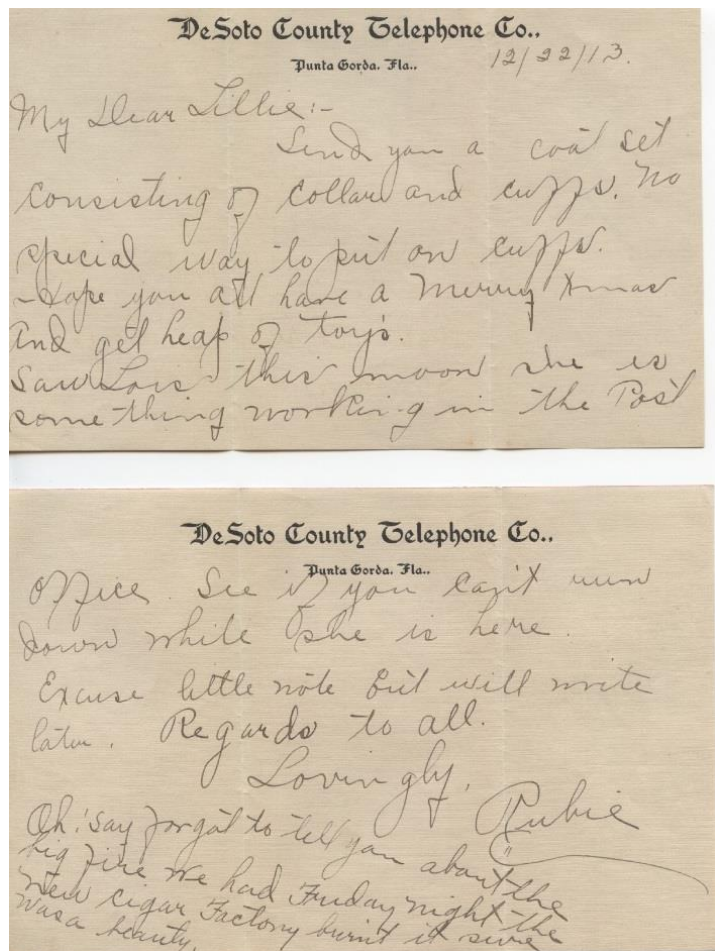 DeSoto County Telephone Co..
Punta Gorda. Fla..
12/22/13.
My Dear Lillie:-
Send you a coat set
consisting of collar and cuffs. No
special way to put on cuffs.
Hope you all have a Merry Xmas
And get heap of toys.
Saw Lois this moon she is
something working in the Post
DeSoto County Telephone Co..
Punta Gorda. Fla..
Office. See if you can't run
down while she is here.
Excuse little note but will write
later. Regards to all.
Lovingly,
Rubie
Oh! say forgot to tell you about the
big fire we had Friday night the
New cigar Factory burnt it sure
was a beauty.